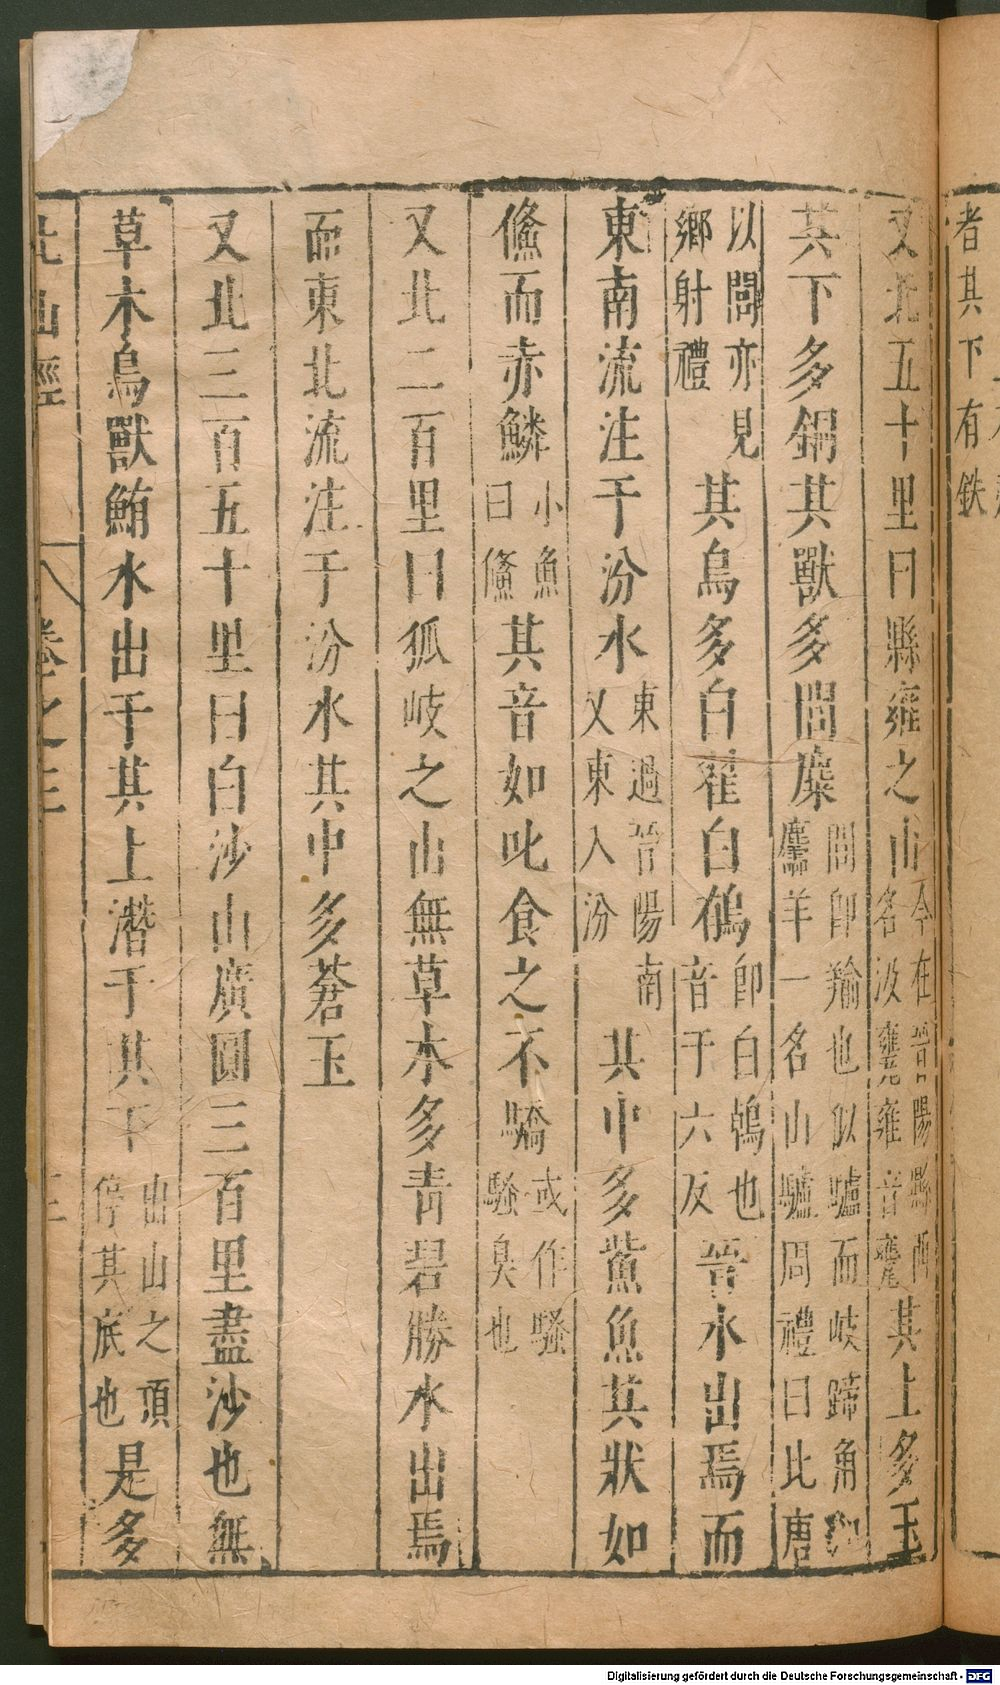 者其下有鉄
又北五十里曰縣雍之山今在晉陽縣西名汲甕雍音甕其上多玉
其下多銅其獸多閭麋閭即羭也似驢而岐蹄角如麢羊一名山驢周禮曰北唐
以閭亦見鄉射禮其鳥多白翟白鵺即白鵫也音于六反晉水出焉而
東南流注于汾水東過晉陽南又東入汾其中多鮆魚其狀如
儵而赤鱗小魚曰儵其音如叱食之不驕或作騷騷臭也
又北二百里曰狐岐之山無草木多青碧勝水出焉
而東北流注于汾水其中多蒼玉
又北三百五十里曰白沙山廣圓三百里盡沙也無
草木鳥獸鮪水出于其上潛于其下出山之頂停其底也是多
北山經 卷之三
Digitalisierung gefördert durch die Deutsche Forschungsgemeinschaft - DFG